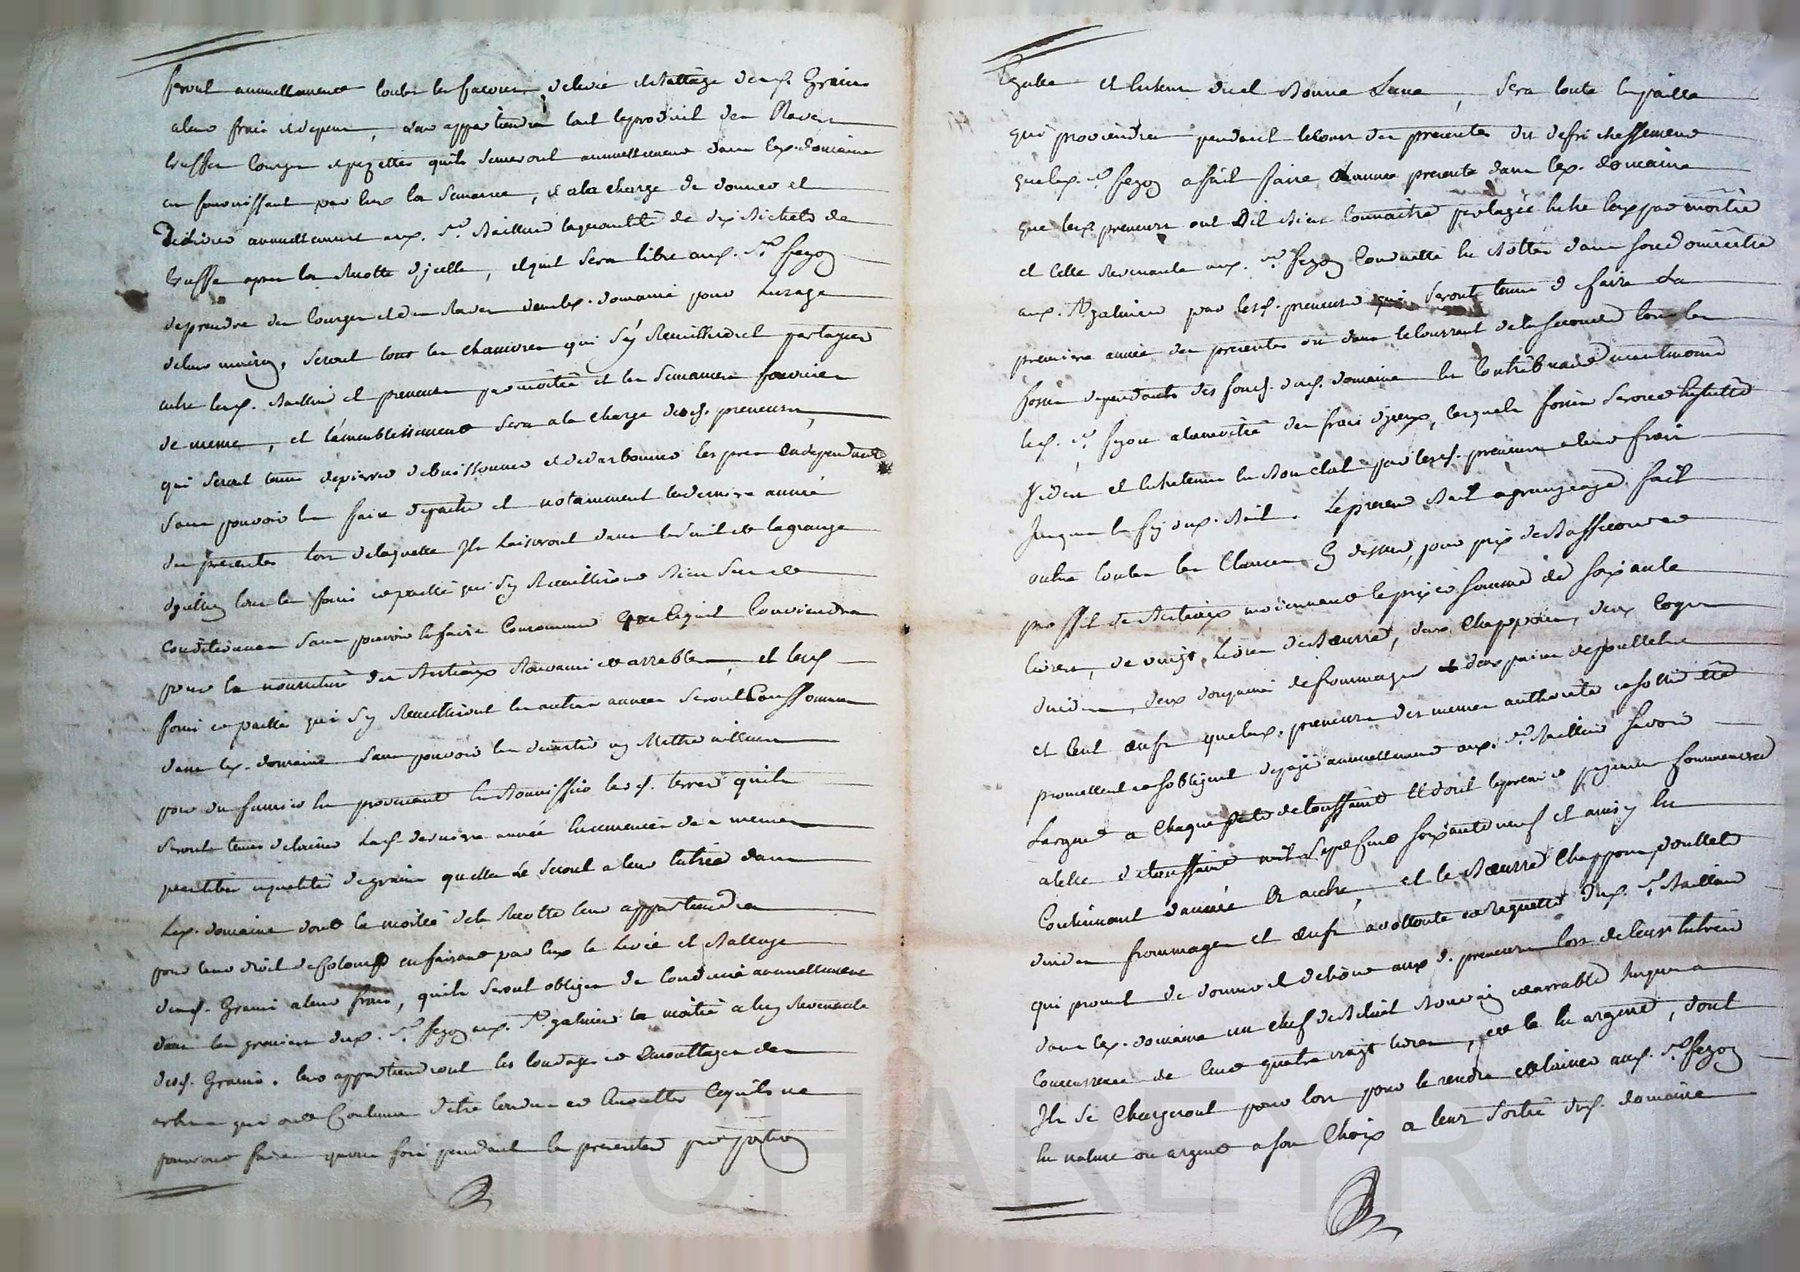 feront annuellement toutes les façons, delevée et battage desd. Grains
a leurs frais et depens, leur appartiendra tout le produit des Raves
truffes Courges et pezettes quils semeront annuellement dans led. domaine
en fournissant par eux la semence, et a la charge de donner et
delivrer annuellement aud. Sr. Baillard la quantité de dix bichets de
truffes apres la Recolte d'jcelle, et quil sera libre aud. Sr. fezoy
de prendre des Courges et des Raves dans led. domaine pour lusage
de leur maison, seront tous les chanvres qui s'y Recuilliront partagés
entre lesd. Baillard et preneurs par moitié et les semances fournies
de meme, et l'emmeublissement sera a la charge desd. preneurs,
qui seront tenus depierrer debuissonner et dedarbonner les prés en dependants
sans pouvoir les faire depaitre et notamment la derniere année
des presentes lors de laquelle Jls laisseront dans la fenil et la grange
d'jcelluy tous les foins et paille qui s'y Recuilliront bien secs et
conditionnés sans pouvoir les faire Consommer que ce quil Conviendra
pour la nourriture des Bestiaux Rouvans et arrables, et lesd.
foins et paille qui s'y Recuilliront les autres années seront Conssommés
dans led. domaine sans pouvoir les divertir ny Mettre ailleurs
pour du fumier en provenant en Nourrissir lesd. terres quils
seront tenus de laisser lad. derniere année Ensemencées de memes
quantités et qualités de grains quelles Le seront a leur Entrée dans
Led. domaine dont la moitié de la Recolte leur appartiendra
pour leur droit de Colonage en faisant par eux la Levée et Battage
desd. Grains a leurs frais, quils seront obligés de Conduire annuellement
dans les greniers dud. Sr. fezoy aud. St. galmier la moitié a luy Revenante
desd. Grains. leur appartiendront les tondages et Emouttages des
arbres qui ont Coutume detre tondus et Emouttés Cequils ne
pourront faire quune fois pendant les presentes par portion
Egalle et en tems du et Bonne Lune, sera toute la paille
qui proviendra pendant le Cours des presentes du defrichessement
que led. Sr. fezoy a fait faire L'année presente dans led. domaine
que lesd. preneurs ont Dit bien Connaitre partagée Entre Eux par moitié
et Celle Revenante aud. Sr. fezoy Conduitte En Bottes dans son domicille
aud. St. galmier par lesd. preneurs qui seront tenus de faire La
premiere année des presentes ou dans le Courrant de la seconde tous les
fossés dependants des fonds dud. domaine En Contribuant neantmoins
led. Sr. fezoy a la moitié des frais d'jceux, lesquels fossés seront Ensuitte
Vidés et Entretenus En Bon etat par lesd. preneurs a leurs frais
Jusques la fin dud. Bail. Le present Bail a grangeage fait
outre toutes les Clauses Cy dessus, pour prix de Bassecour et
proffit de Bestiaux moiennant le prix et somme de soixante
livres, de vingt Livres de Beurre, deux Chappons, deux Coqs
dindes, deux douzaines de frommages et deux paires de poullets
et Cent œufs que lesd. preneurs des memes authorité et solidité
promettent et s'obligent de payer annuellement aud. Sr. Baillard Savoir
Largent a Chaque fete de toussaint Et dont le premier payement Commencera
a telle de toussaint mil Sept Cent Soixante neuf et ainsy En
Continuant d'année En autre, et le Beurre Chappons, Poullets
dindes frommages et œufs a vollonté et Requette dud. Sr. Baillard
qui promet de donner et delivrer aux d. preneurs lors de leur Entrée
dans led. domaine un chef de Betail Rouvain et arrable Jusques a
Concurrence de Cent quatre vingt livres, et le En argent, dont
Jls se Chargeront pour lors pour le rendre et laisser aud. Sr. fezoy
En nature ou argent a son Choix a leur Sortie dud. domaine